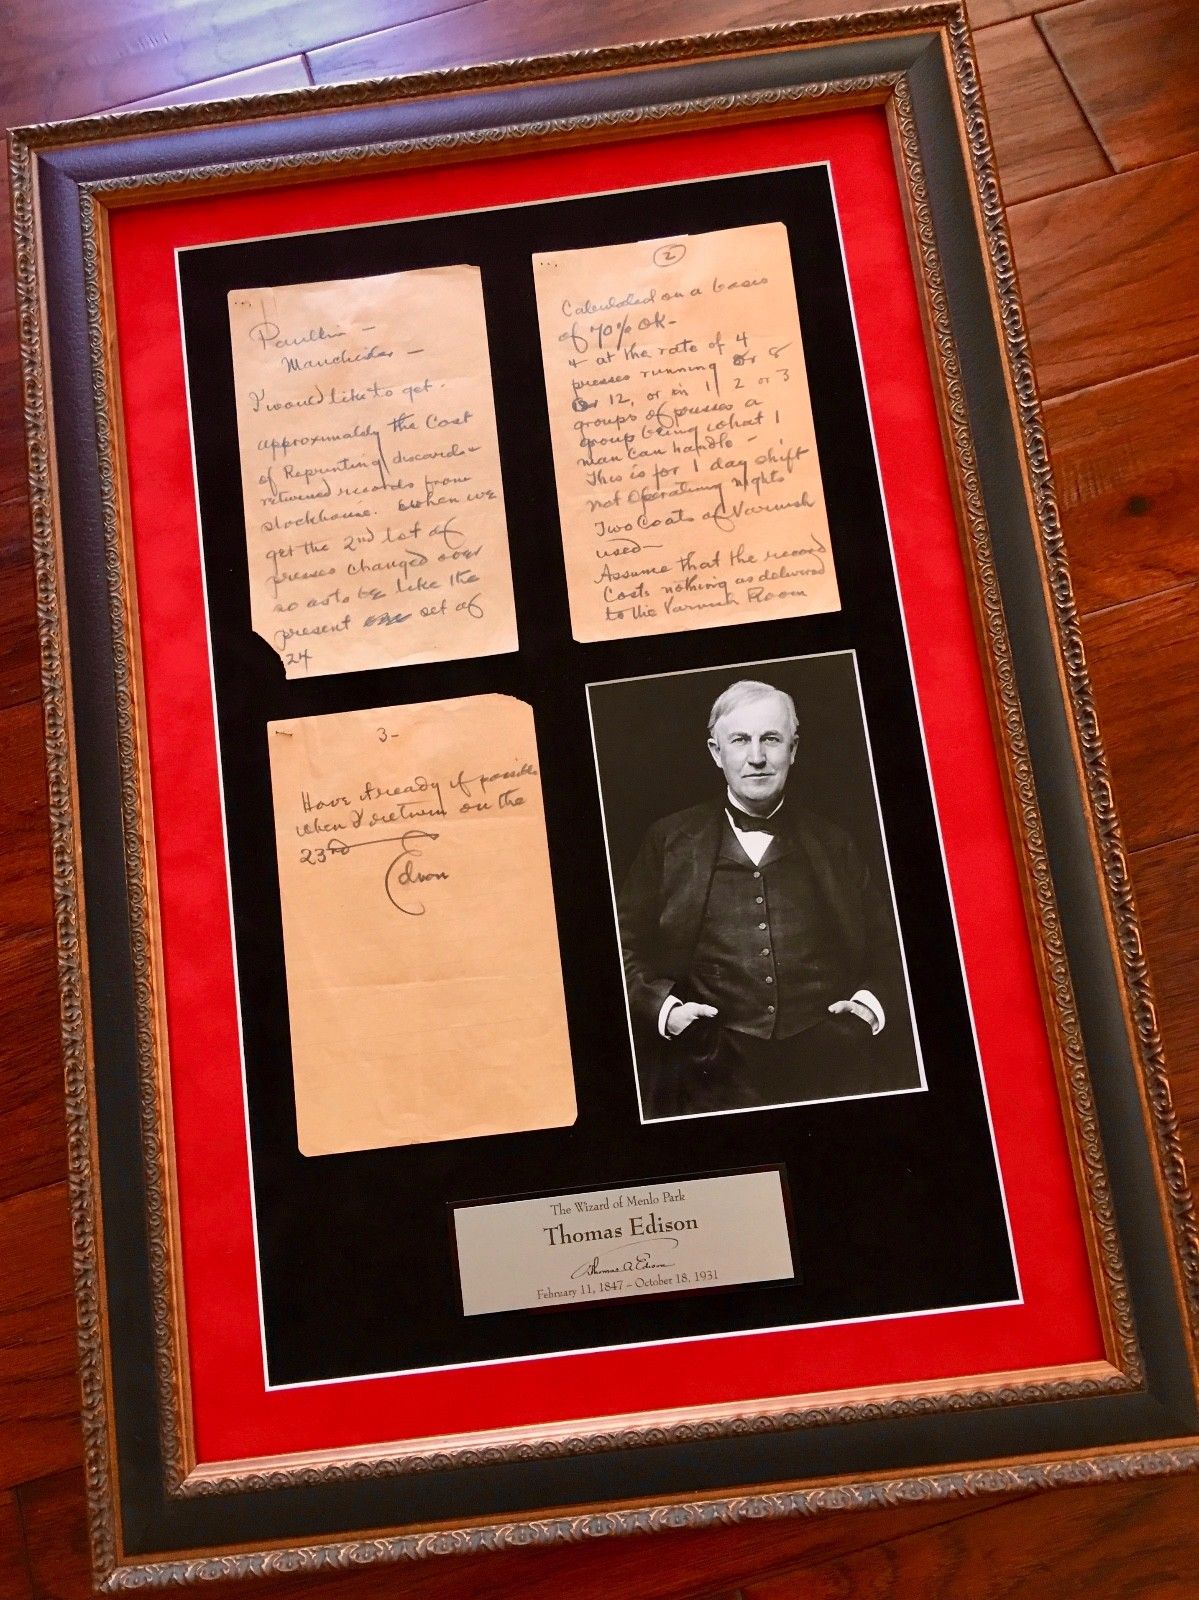 Manchester —
I would like to get
approximately the Cost
of Reprinting discards +
returned records from
stockhouse. When we
get the 2nd lot of
presses changed over
so as to be like the
present set of
24
2
Calculated on a basis
of 70% OK —
+ at the rate of 4
presses running or 8
or 12, or in 1, 2 or 3
groups of presses a
group being what 1
man can handle —
This is for 1 day shift
not operating nights
Two Coats of Varnish
used —
Assume that the record
Costs nothing as delivered
to the Varnish Room
3-
Have ready if possible
when I return on the
23rd
Edison
The Wizard of Menlo Park
Thomas Edison
Thomas A Edison
February 11, 1847 – October 18, 1931